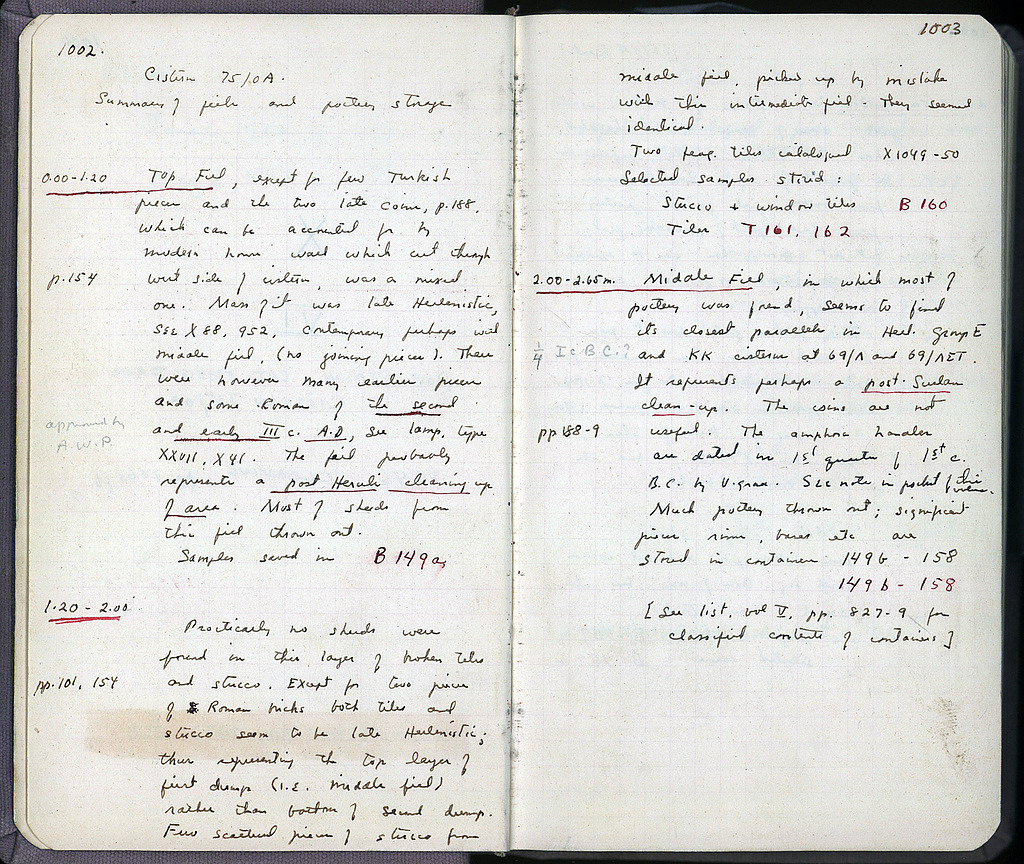 1002.
Cistern 75/0A.
Summary of fills and pottery storage
0.00-1.20 Top Fill, except for few Turkish
pieces and the two late coins, p.188,
which can be accounted for by
modern house wall which cut through
p.154 west side of cistern, was a mixed
one. Mass of it was late Hellenistic,
see X 88, 952, contemporary perhaps with
middle fill, (no joining pieces). There
were however many earlier pieces
and some Roman of the second
approved by A.W.P.
and early III c. A.D, see lamp, type
XXVII, X41. The fill probably
represents a post Heruli cleaning up
of area. Most of sherds from
this fill thrown out.
Samples saved in B 149a
1.20 - 2.00
Practically no sherds were
found in this layer of broken tiles
pp. 101, 154 and stucco. Except for two pieces
of Roman bricks both tiles and
stucco seem to be late Hellenistic;
thus representing the top layer of
first dump (i.e. middle fill)
rather than bottom of second dump.
Few scattered pieces of stucco from
1003
middle fill, picked up by mistake
with this intermediate fill. They seemed
identical.
Two frag. tiles catalogued X1049-50
Selected samples stored:
Stucco + window tiles B 160
Tiles T 161, 162
2.00-2.65m. Middle Fill, in which most of
pottery was found, seems to find
its closest parallels in Hell. Group E
1/4 I c B.C.? and KK cisterns at 69/Λ and 69/ΛET.
It represents perhaps a post-Sullan
clean-up. The coins are not
pp 188-9 useful. The amphora handles
are dated in 1st quarter of 1st c.
B.C. by V. Grace. See note in pocket of this volume.
Much pottery thrown out; significant
pieces, rims, bases etc are
stored in containers 149b - 158
149b - 158
[See list, vol V, pp. 827-9 for
classified contents of containers]